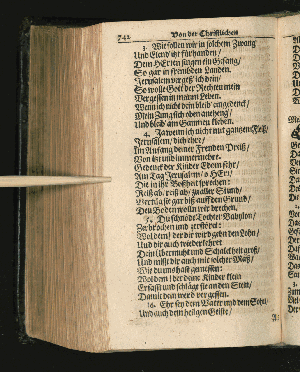 742 Von der Christlichen
3. Wie sollen wir in solchem Zwang
Und Elend itzt fürhanden/
Dein HErren singen ein Gesang/
So gar in frembden Landen.
Jerusalem vergeß ich dein/
So wolle Gott der Rechten mein
Vergessen in meim Leben.
Wenn ich nicht dein bleib eingedenck/
Mein Zung sich oben anhenge/
Und bleib am Gaumen kleben.
4. Ja wenn ich nicht mit gantzem Fleiß/
Jerusalem/ dich ehre/
Im Anfang deiner Freuden Preiß/
Von itzt und immermehre.
Gedenck der Kinder Edom sehr/
Am Tag Jerusalem/ o HErr/
Die in ihr Boßheit sprechen:
Reiß ab/ reiß ab/ zu aller Stund/
Vertilg sie gar biß auff den Grund/
Den Boden wolln wir brechen.
5. Du schnöde Tochter Babylon/
Zerbrochen und zerstöret:
Wol dem/ der dir wird gebn den Lohn/
Und dir auch wiederkehret
Dein Übermuht und Schalckheit groß/
Und misst dir auch mit solcher Maß/
Wie du uns hast gemessen:
Wol dem/ der deine Kinder klein
Erfasst und schlägt sie an den Stein/
Damit dein werd vergessen.
6. Ehr sey dem Vater und dem Sohn/
Und auch dem heilgen Geiste/